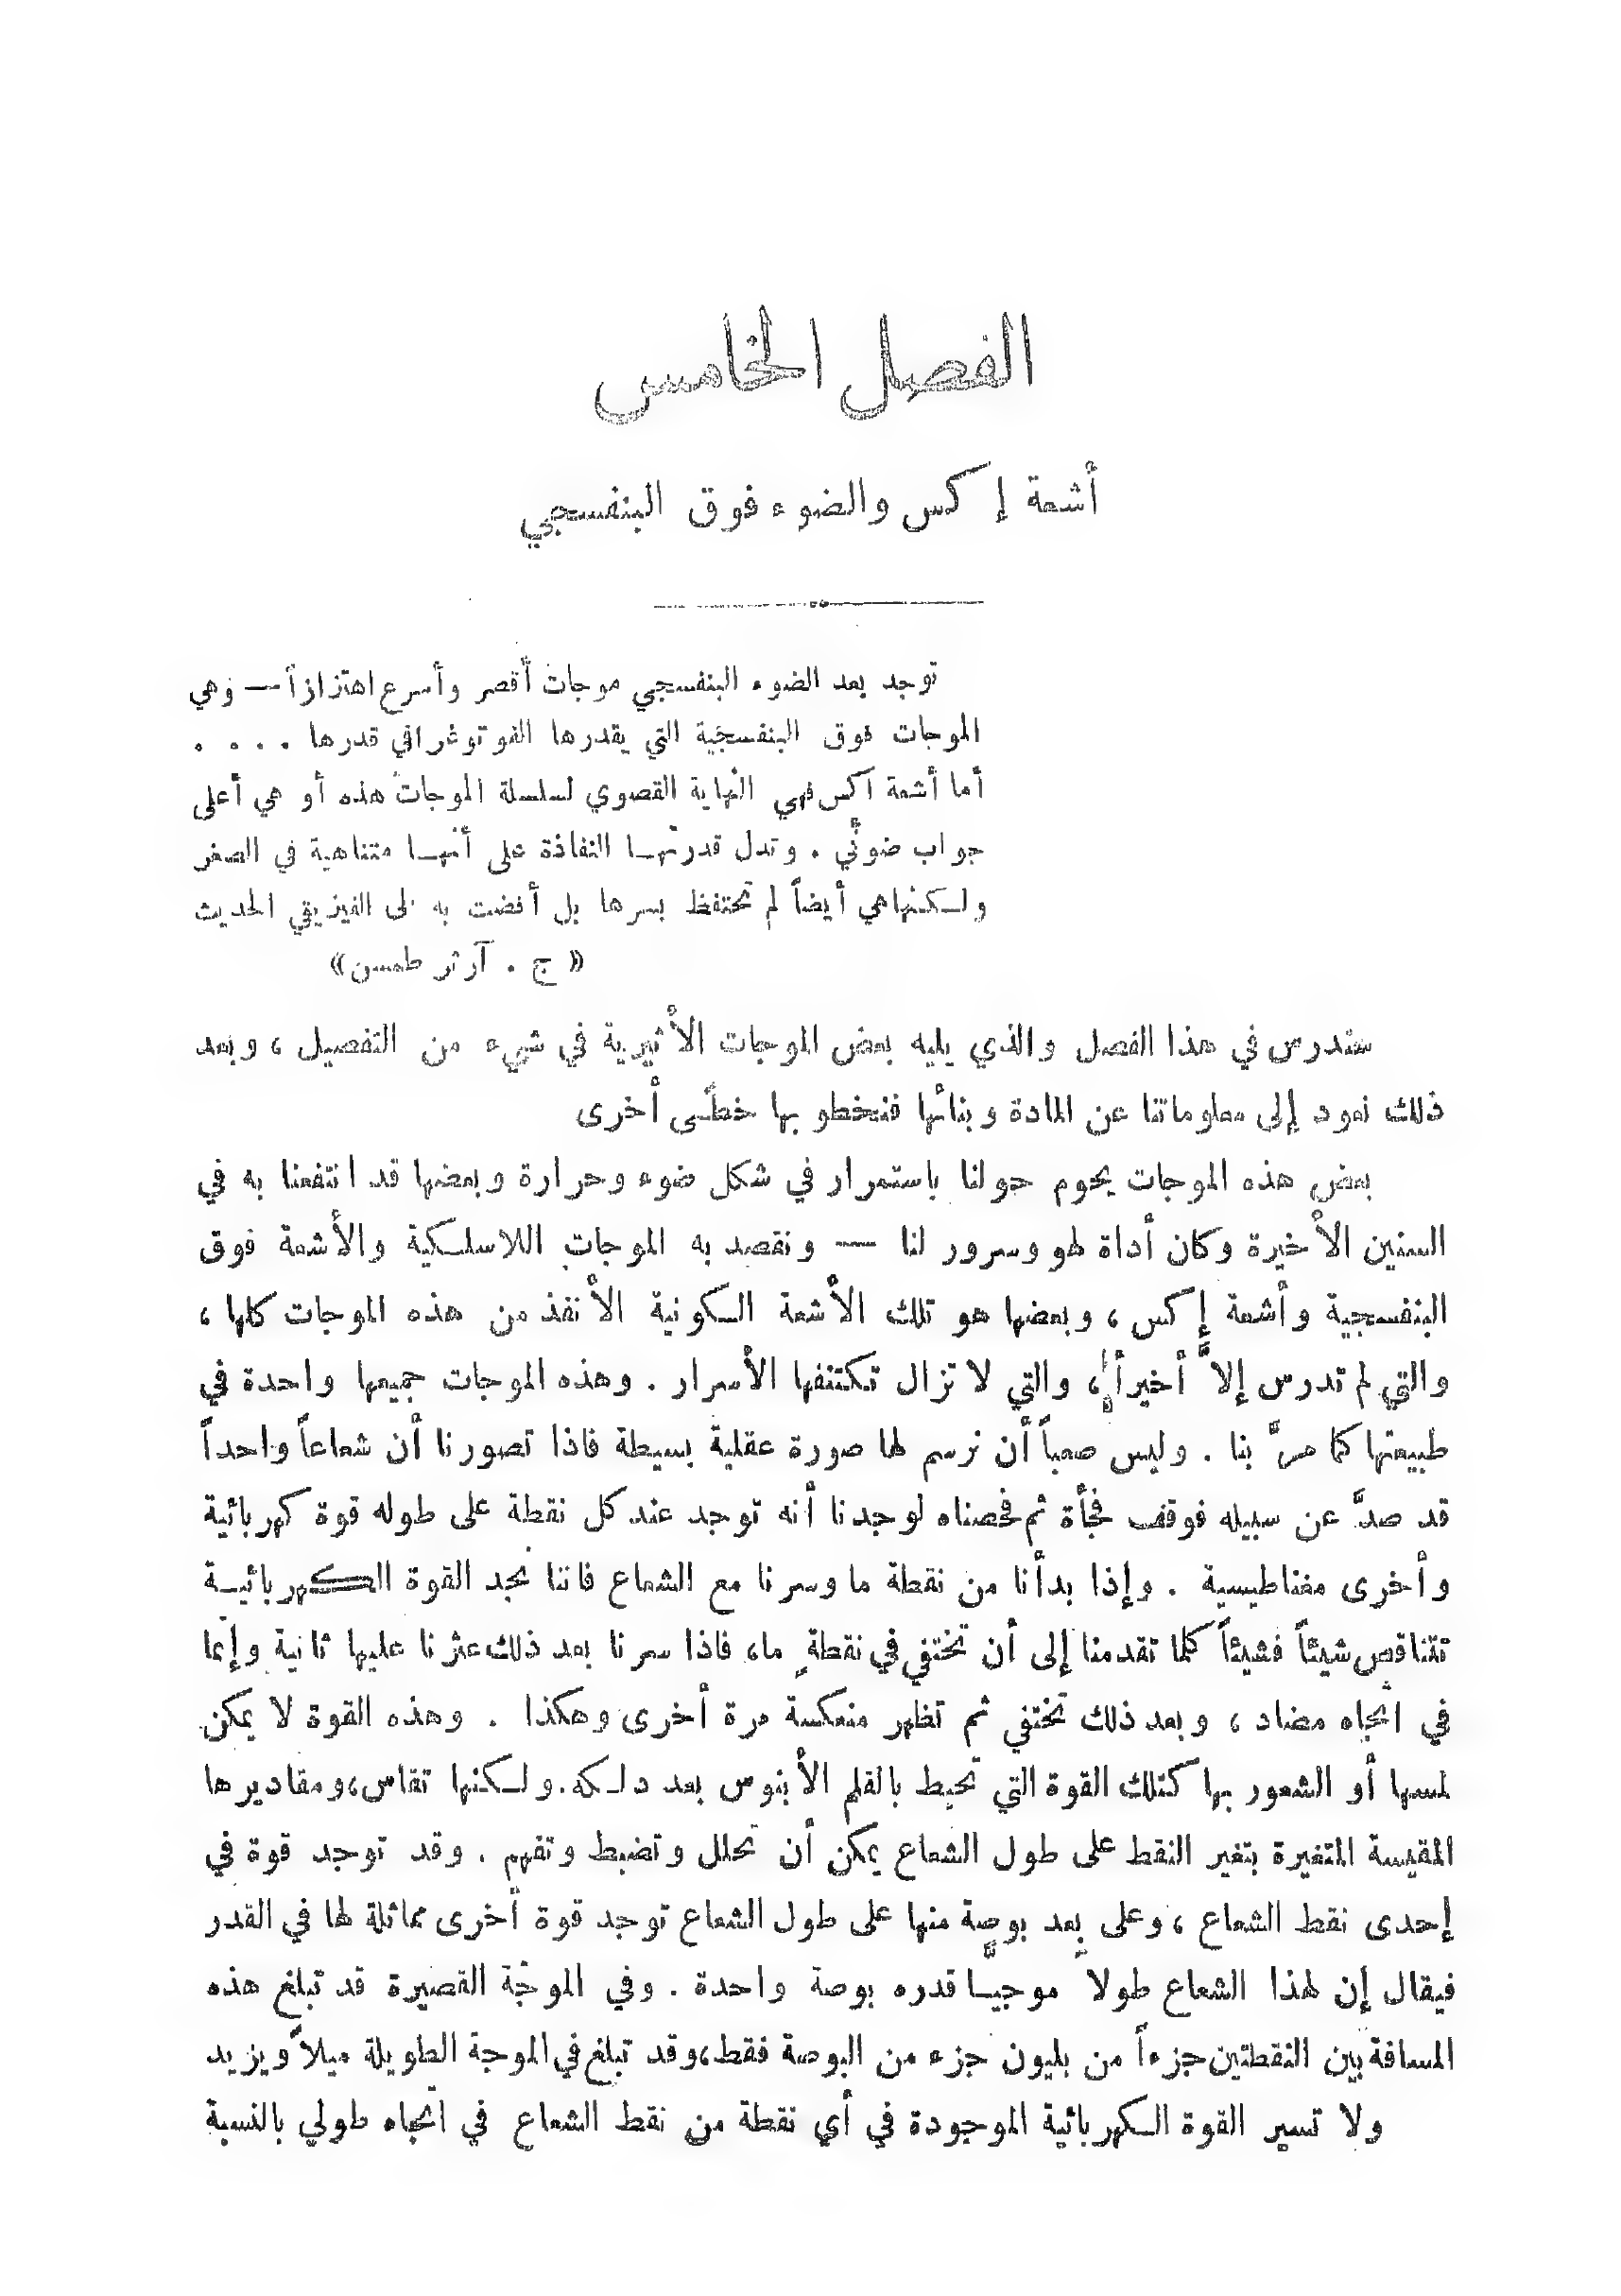 الفصل الخامس
أشعة إكس والضوء فوق البنفسجي
توجد بعد الضوء البنفسجي موجات أقصر وأسرع اهتزازاً — وهي
الموجات فوق البنفسجية التي يقدرها الفوتوغرافي قدرها . . . .
أما أشعة اكس فهي النهاية القصوي لسلسلة الموجات هذه أو هي أعلى
جواب ضوئي . وتدل قدرتها النفاذة على أنها متناهية في الصغر
ولكنها هي أيضاً لم تحتفظ بسرها بل أفضت به إلى الفيزيقي الحديث
« ج . آرثر طمسن»
سندرس في هذا الفصل والذي يليه بعض الموجات الأثيرية في شيء من التفصيل ، وبعد
ذلك نعود إلى معلوماتنا عن المادة وبنائها فنخطو بها خطًى أخرى
بعض هذه الموجات يحوم حولنا باستمرار في شكل ضوء وحرارة وبعضها قد انتفعنا به في
السنين الأخيرة وكان أداة لهو وسرور لنا — ونقصد به الموجات اللاسلكية والأشعة فوق
البنفسجية وأشعة إكس ، وبعضها هو تلك الأشعة الكونية الأنفذ من هذه الموجات كلها ،
والتي لم تدرس إلاَّ أخيراً ، والتي لا تزال تكتنفها الأسرار . وهذه الموجات جميعها واحدة في
طبيعتها كما مرَّ بنا . وليس صعباً أن نرسم لها صورة عقلية بسيطة فاذا تصورنا أن شعاعاً واحداً
قد صدَّ عن سبيله فوقف فجأة ثم فحصناه لوجدنا أنه توجد عند كل نقطة على طوله قوة كهربائية
وأخرى مغناطيسية . وإذا بدأنا من نقطة ما وسرنا مع الشعاع فاننا نجد القوة الكهربائية
تتناقص شيئاً فشيئاً كلما تقدمنا إلى أن تختفي في نقطةٍ ما، فاذا سرنا بعد ذلك عثرنا عليها ثانية وإنما
في اتجاه مضاد ، وبعد ذلك تختفي ثم تظهر منعكسة مرة أخرى وهكذا . وهذه القوة لا يمكن
لمسها أو الشعور بها كتلك القوة التي تحيط بالقلم الأبنوس بعد دلكه. ولكنها تقاس، ومقاديرها
المقيسة المتغيرة بتغير النقط على طول الشعاع يمكن أن تحلل وتضبط وتفهم . وقد توجد قوة في
إحدى نقط الشعاع ، وعلى بعد بوصة منها على طول الشعاع توجد قوة أخرى مماثلة لها في القدر
فيقال إن لهذا الشعاع طولا موجيا قدره بوصة واحدة . وفي الموجة القصيرة قد تبلغ هذه
المسافة بين النقطتين جزءاً من بليون جزء من البوصة فقط، وقد تبلغ في الموجة الطويلة ميلاً ويزيد
ولا تسير القوة الكهربائية الموجودة في أي نقطة من نقط الشعاع في اتجاه طولي بالنسبة